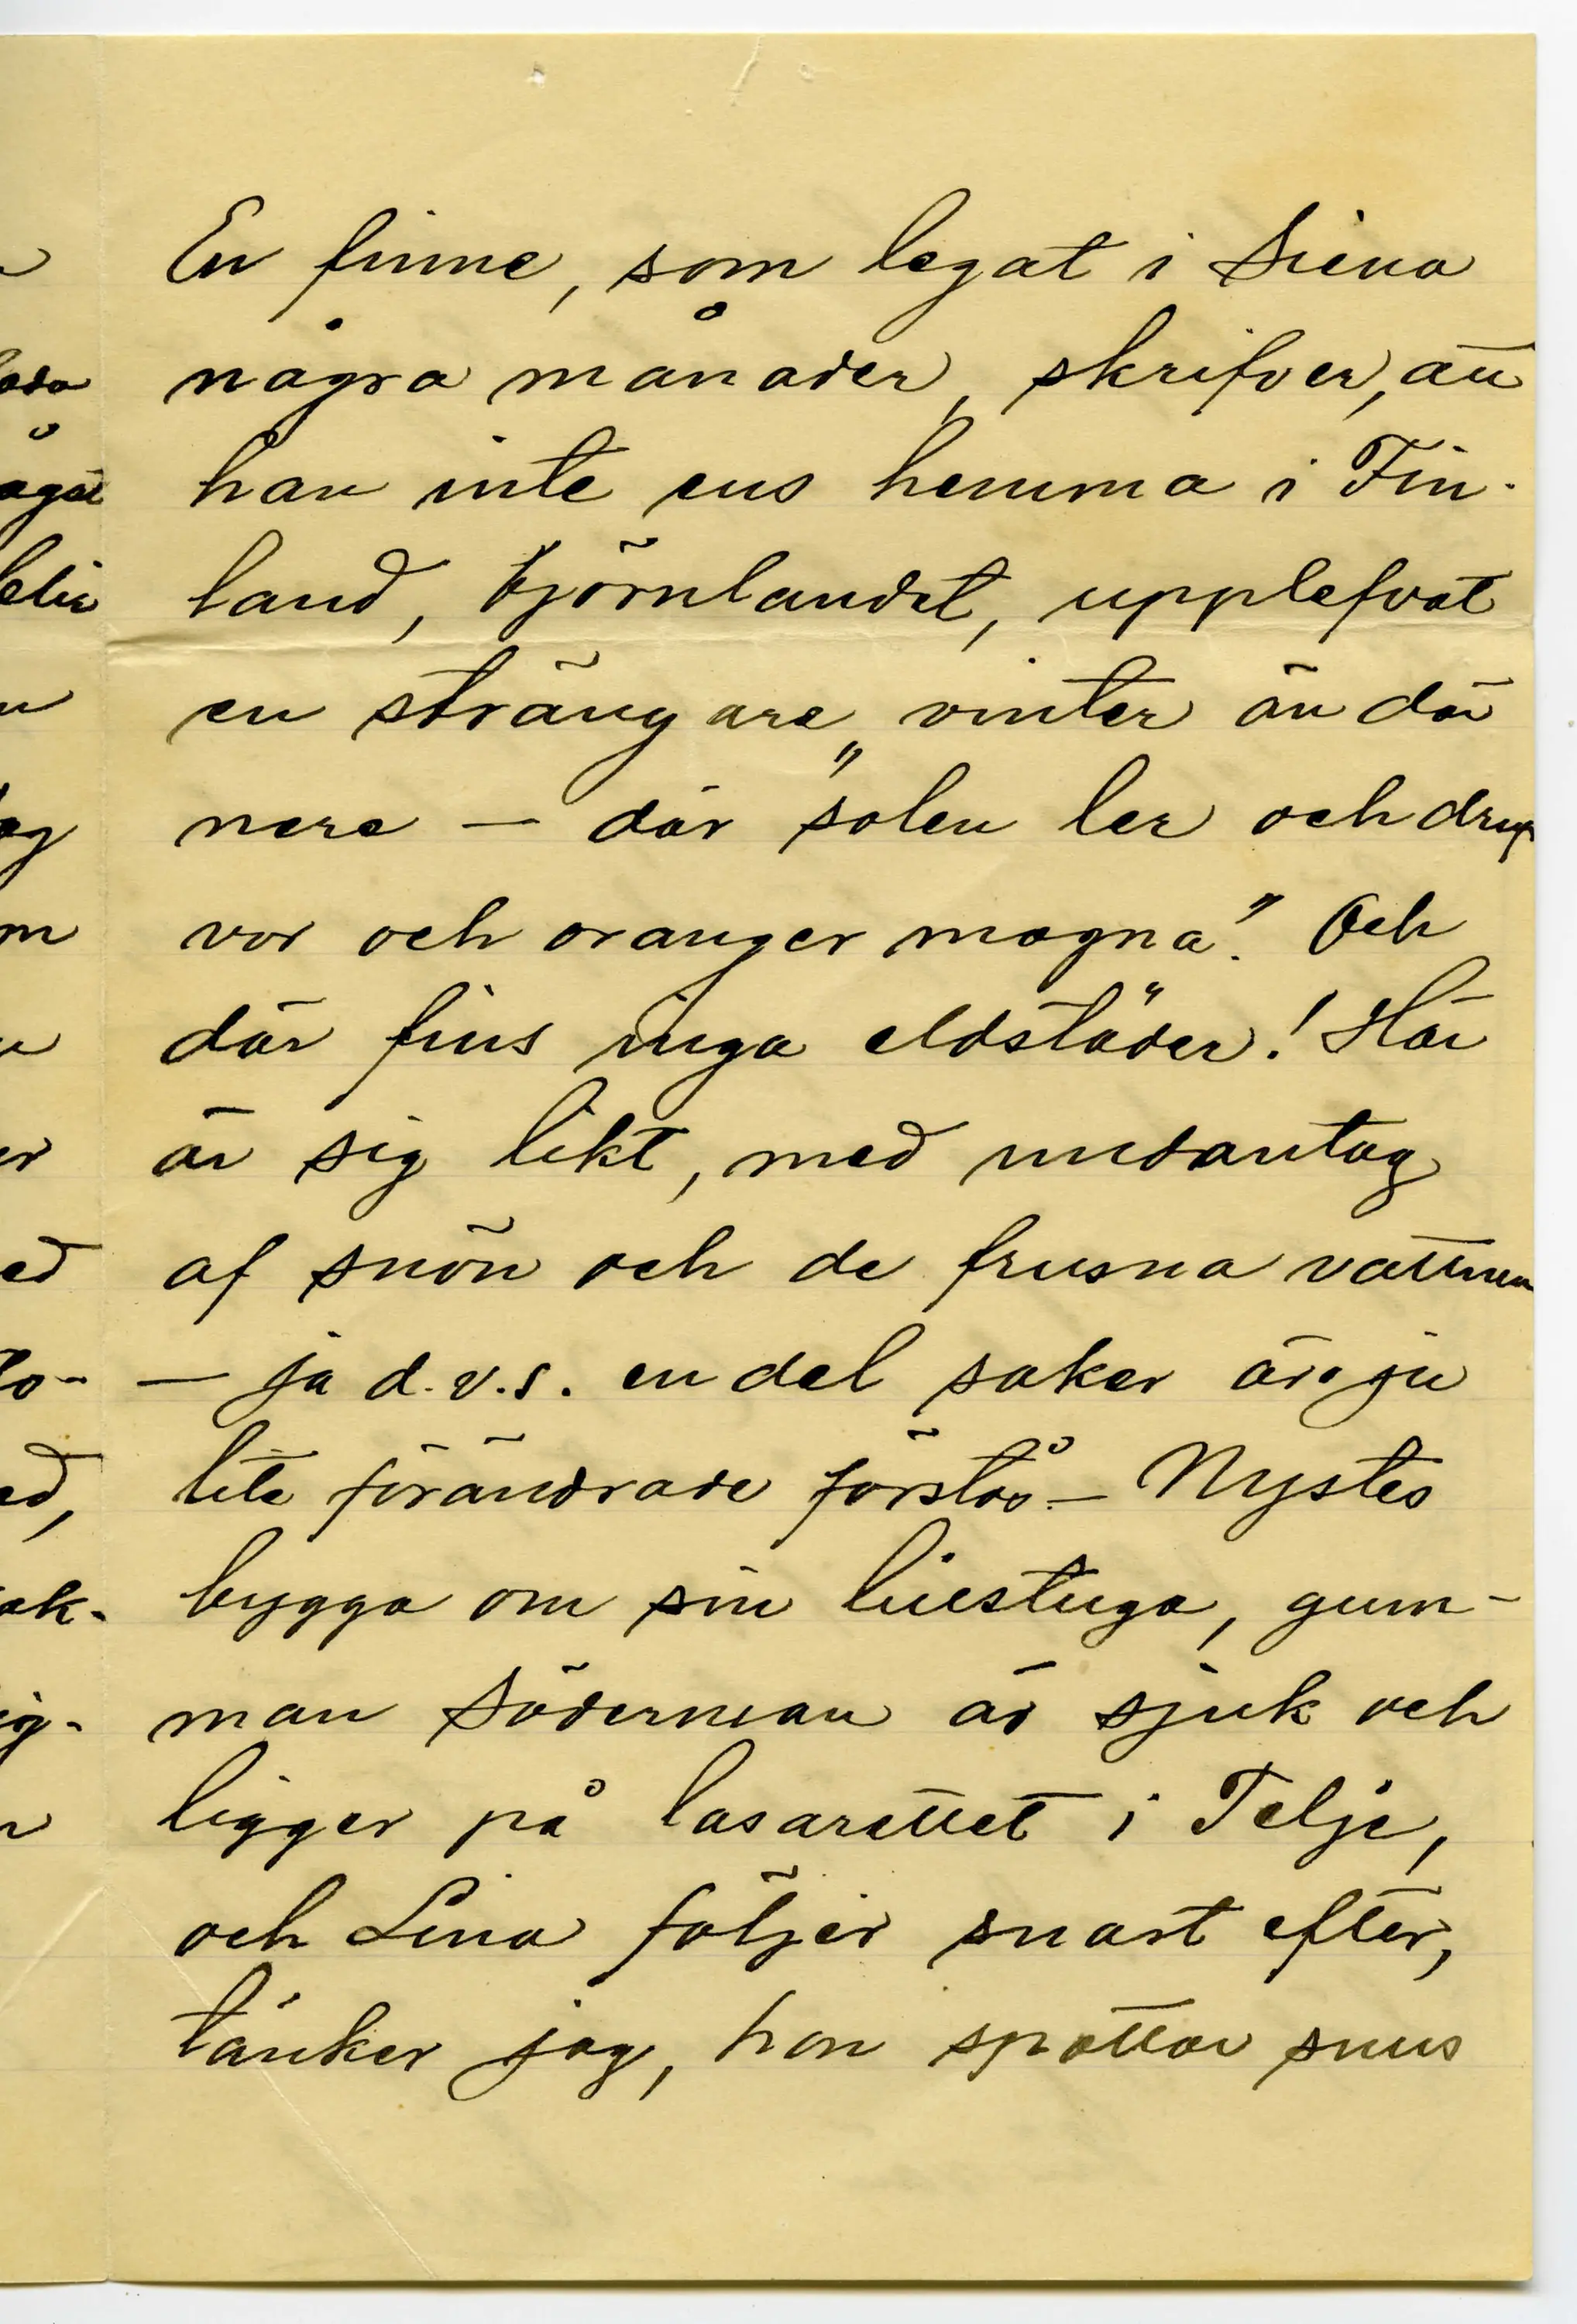 En finne, som legat i Siena
några månader, skrifver, att
han inte ens hemma i Fin-
land, björnlandet, upplefvat
en strängare vinter än där
nere — där "solen ler och druf
vor och oranger mogna". Och
där fins inga eldstäder! Här
är sig likt, med undantag
af snön och de frusna vattnen
— ja d.v.s. en del saker är ju
lite förändrade förstås. — Nystes
bygga om sin lillstuga, gum-
man Söderman är sjuk och
ligger på lasarettet i Telje,
och Lina följer snart efter,
tänker jag, hon spottar snus